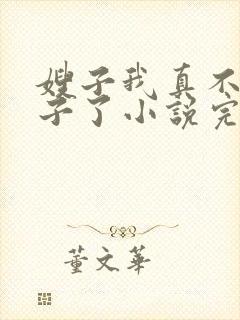 嫂子我真不
子了小說完
董文華